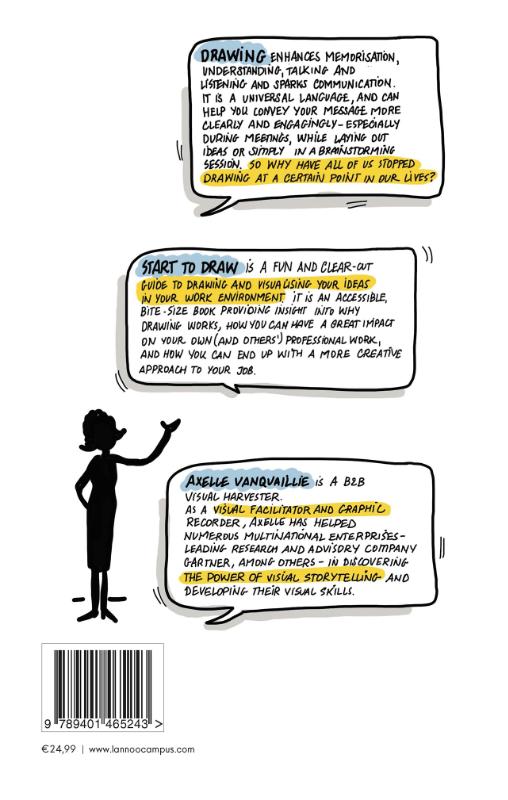 DRAWING ENHANCES MEMORISATION,
UNDERSTANDING, TALKING AND
LISTENING AND SPARKS COMMUNICATION.
IT IS A UNIVERSAL LANGUAGE, AND CAN
HELP YOU CONVEY YOUR MESSAGE MORE
CLEARLY AND ENGAGINGLY - ESPECIALLY
DURING MEETINGS, WHILE LAYING OUT
IDEAS OR SIMPLY IN A BRAINSTORMING
SESSION. SO WHY HAVE ALL OF US STOPPED
DRAWING AT A CERTAIN POINT IN OUR LIVES?
START TO DRAW IS A FUN AND CLEAR-CUT
GUIDE TO DRAWING AND VISUALISING YOUR IDEAS
IN YOUR WORK ENVIRONMENT. IT IS AN ACCESSIBLE,
BITE-SIZE BOOK PROVIDING INSIGHT INTO WHY
DRAWING WORKS, HOW YOU CAN HAVE A GREAT IMPACT
ON YOUR OWN (AND OTHERS') PROFESSIONAL WORK,
AND HOW YOU CAN END UP WITH A MORE CREATIVE
APPROACH TO YOUR JOB.
AXELLE VANQUAILLIE IS A B2B
VISUAL HARVESTER.
AS A VISUAL FACILITATOR AND GRAPHIC
RECORDER, AXELLE HAS HELPED
NUMEROUS MULTINATIONAL ENTERPRISES -
LEADING RESEARCH AND ADVISORY COMPANY
GARTNER, AMONG OTHERS - IN DISCOVERING
THE POWER OF VISUAL STORYTELLING AND
DEVELOPING THEIR VISUAL SKILLS.
9 789401 465243 >
€24,99 | www.lannoocampus.com